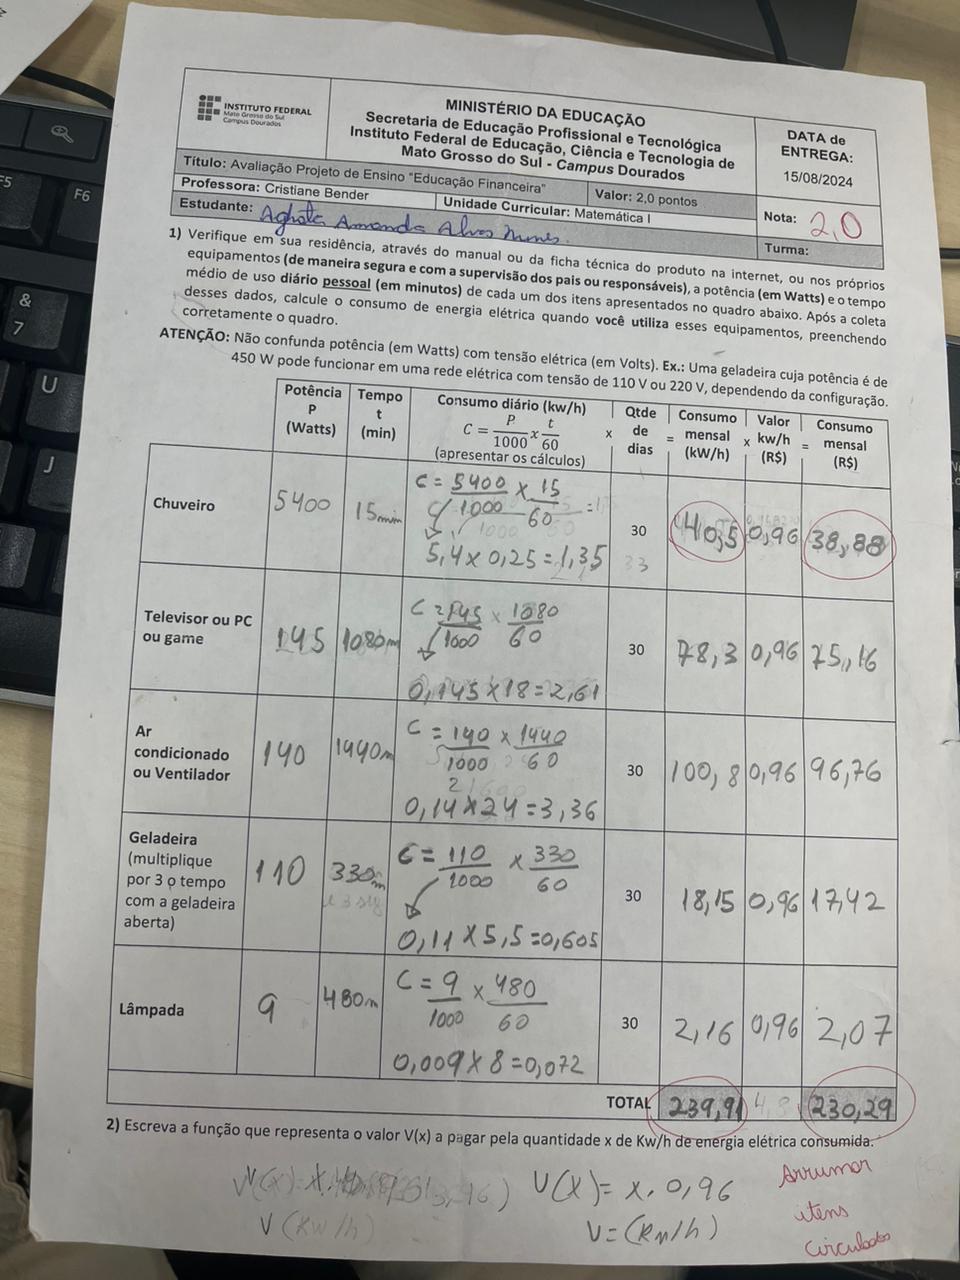 INSTITUTO FEDERAL
Mato Grosso do Sul
Campus Dourados
MINISTÉRIO DA EDUCAÇÃO
Secretaria de Educação Profissional e Tecnológica
Instituto Federal de Educação, Ciência e Tecnologia de
Mato Grosso do Sul - Campus Dourados
DATA de
ENTREGA:
15/08/2024
Título: Avaliação Projeto de Ensino "Educação Financeira"
Valor: 2,0 pontos
Professora: Cristiane Bender
Unidade Curricular: Matemática I
Nota: 2,0
Estudante: Amanda Alves Nunes
Turma:
1) Verifique em sua residência, através do manual ou da ficha técnica do produto na internet, ou nos próprios
equipamentos (de maneira segura e com a supervisão dos pais ou responsáveis), a potência (em Watts) e o tempo
médio de uso diário pessoal (em minutos) de cada um dos itens apresentados no quadro abaixo. Após a coleta
desses dados, calcule o consumo de energia elétrica quando você utiliza esses equipamentos, preenchendo
corretamente o quadro.
ATENÇÃO: Não confunda potência (em Watts) com tensão elétrica (em Volts). Ex.: Uma geladeira cuja potência é de
450 W pode funcionar em uma rede elétrica com tensão de 110 V ou 220 V, dependendo da configuração.
Potência
P
(Watts)
Tempo
t
(min)
Consumo diário (kw/h)
C = P/1000 x t/60
(apresentar os cálculos)
x
Qtde
de
dias
=
Consumo
mensal
(kW/h)
x
Valor
kw/h
(R$)
=
Consumo
mensal
(R$)
Chuveiro
5400
15min
C = 5400/1000 x 15/60
5,4 x 0,25 = 1,35
30
40,5
0,96
38,88
Televisor ou PC
ou game
145
1080m
C = 145/1000 x 1080/60
0,145 x 18 = 2,61
30
78,3
0,96
75,16
Ar
condicionado
ou Ventilador
140
1440m
C = 140/1000 x 1440/60
0,14 x 24 = 3,36
30
100,8
0,96
96,76
Geladeira
(multiplique
por 3 o tempo
com a geladeira
aberta)
110
330m
C = 110/1000 x 330/60
0,11 x 5,5 = 0,605
30
18,15
0,96
17,42
Lâmpada
9
480m
C = 9/1000 x 480/60
0,009 x 8 = 0,072
30
2,16
0,96
2,07
TOTAL
239,91
230,29
2) Escreva a função que representa o valor V(x) a pagar pela quantidade x de Kw/h de energia elétrica consumida.
V(x) = x . 0,96
V = (Kw/h)
V (Kw/h)
Arrumar
itens
circulados
&
7
U
J
F5
F6